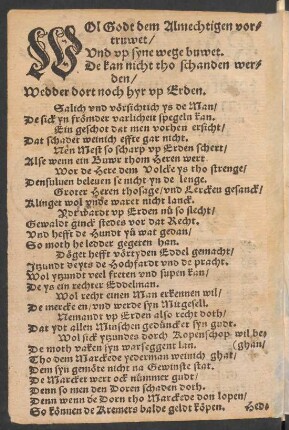 WOl Godt dem Almechtigen vor-
truwet/
Vnd vp syne wege buwet.
De kan nicht tho schanden wer-
den/
Wedder dort noch hyr vp Erden.
Salich vnd vörsichtich ys de Man/
De sick yn frömder varlicheit spegeln kan.
Ein geschot dat men vorhen ersicht/
Dat schadet weinich effte gar nicht.
Nen Mest so scharp vp Erden schert/
Alse wenn ein Buwr thom Heren wert
Wor de Here dem Volcke ys tho strenge/
Densuluen beleuen se nicht yn de lenge.
Groter Heren thosage/vnd Lercken gesanck/
Klinger wol vnde waret nicht lanck.
Ydt wardt vp Erden nü so slecht/
Gewaldt ginck stedes vor dat Recht.
Vnd hefft de Hundt yü wat gedan/
So moth he ledder gegeten han.
Döget hefft vörtyden Eddel gemacht/
Itzundt deyts de Hochfardt vnd de pracht.
Wol ytzundt veel freten vnd supen kan/
De ys ein rechter Eddelman.
Wol recht einen Man erkennen wil/
De mercke en/vnd werde syn Mitgesell.
Nemandt vp Erden also recht doth/
Dat ydt allen Minschen gedüncket syn gudt.
Wol sick ytzundes dorch Kopenschop wil be-
De moth vaken syn warseggent lan. (ghan/
Tho dem Marckede yederman weinich ghat/
Dem syn gemöte nicht na Gewinste stat.
De Marcket wert ock nümmer gudt/
Denn so men den Doren schaden doth.
Denn wenn de Dorn tho Marckede don lopen/
So können de Kremers balde geldt köpen.
Hed-